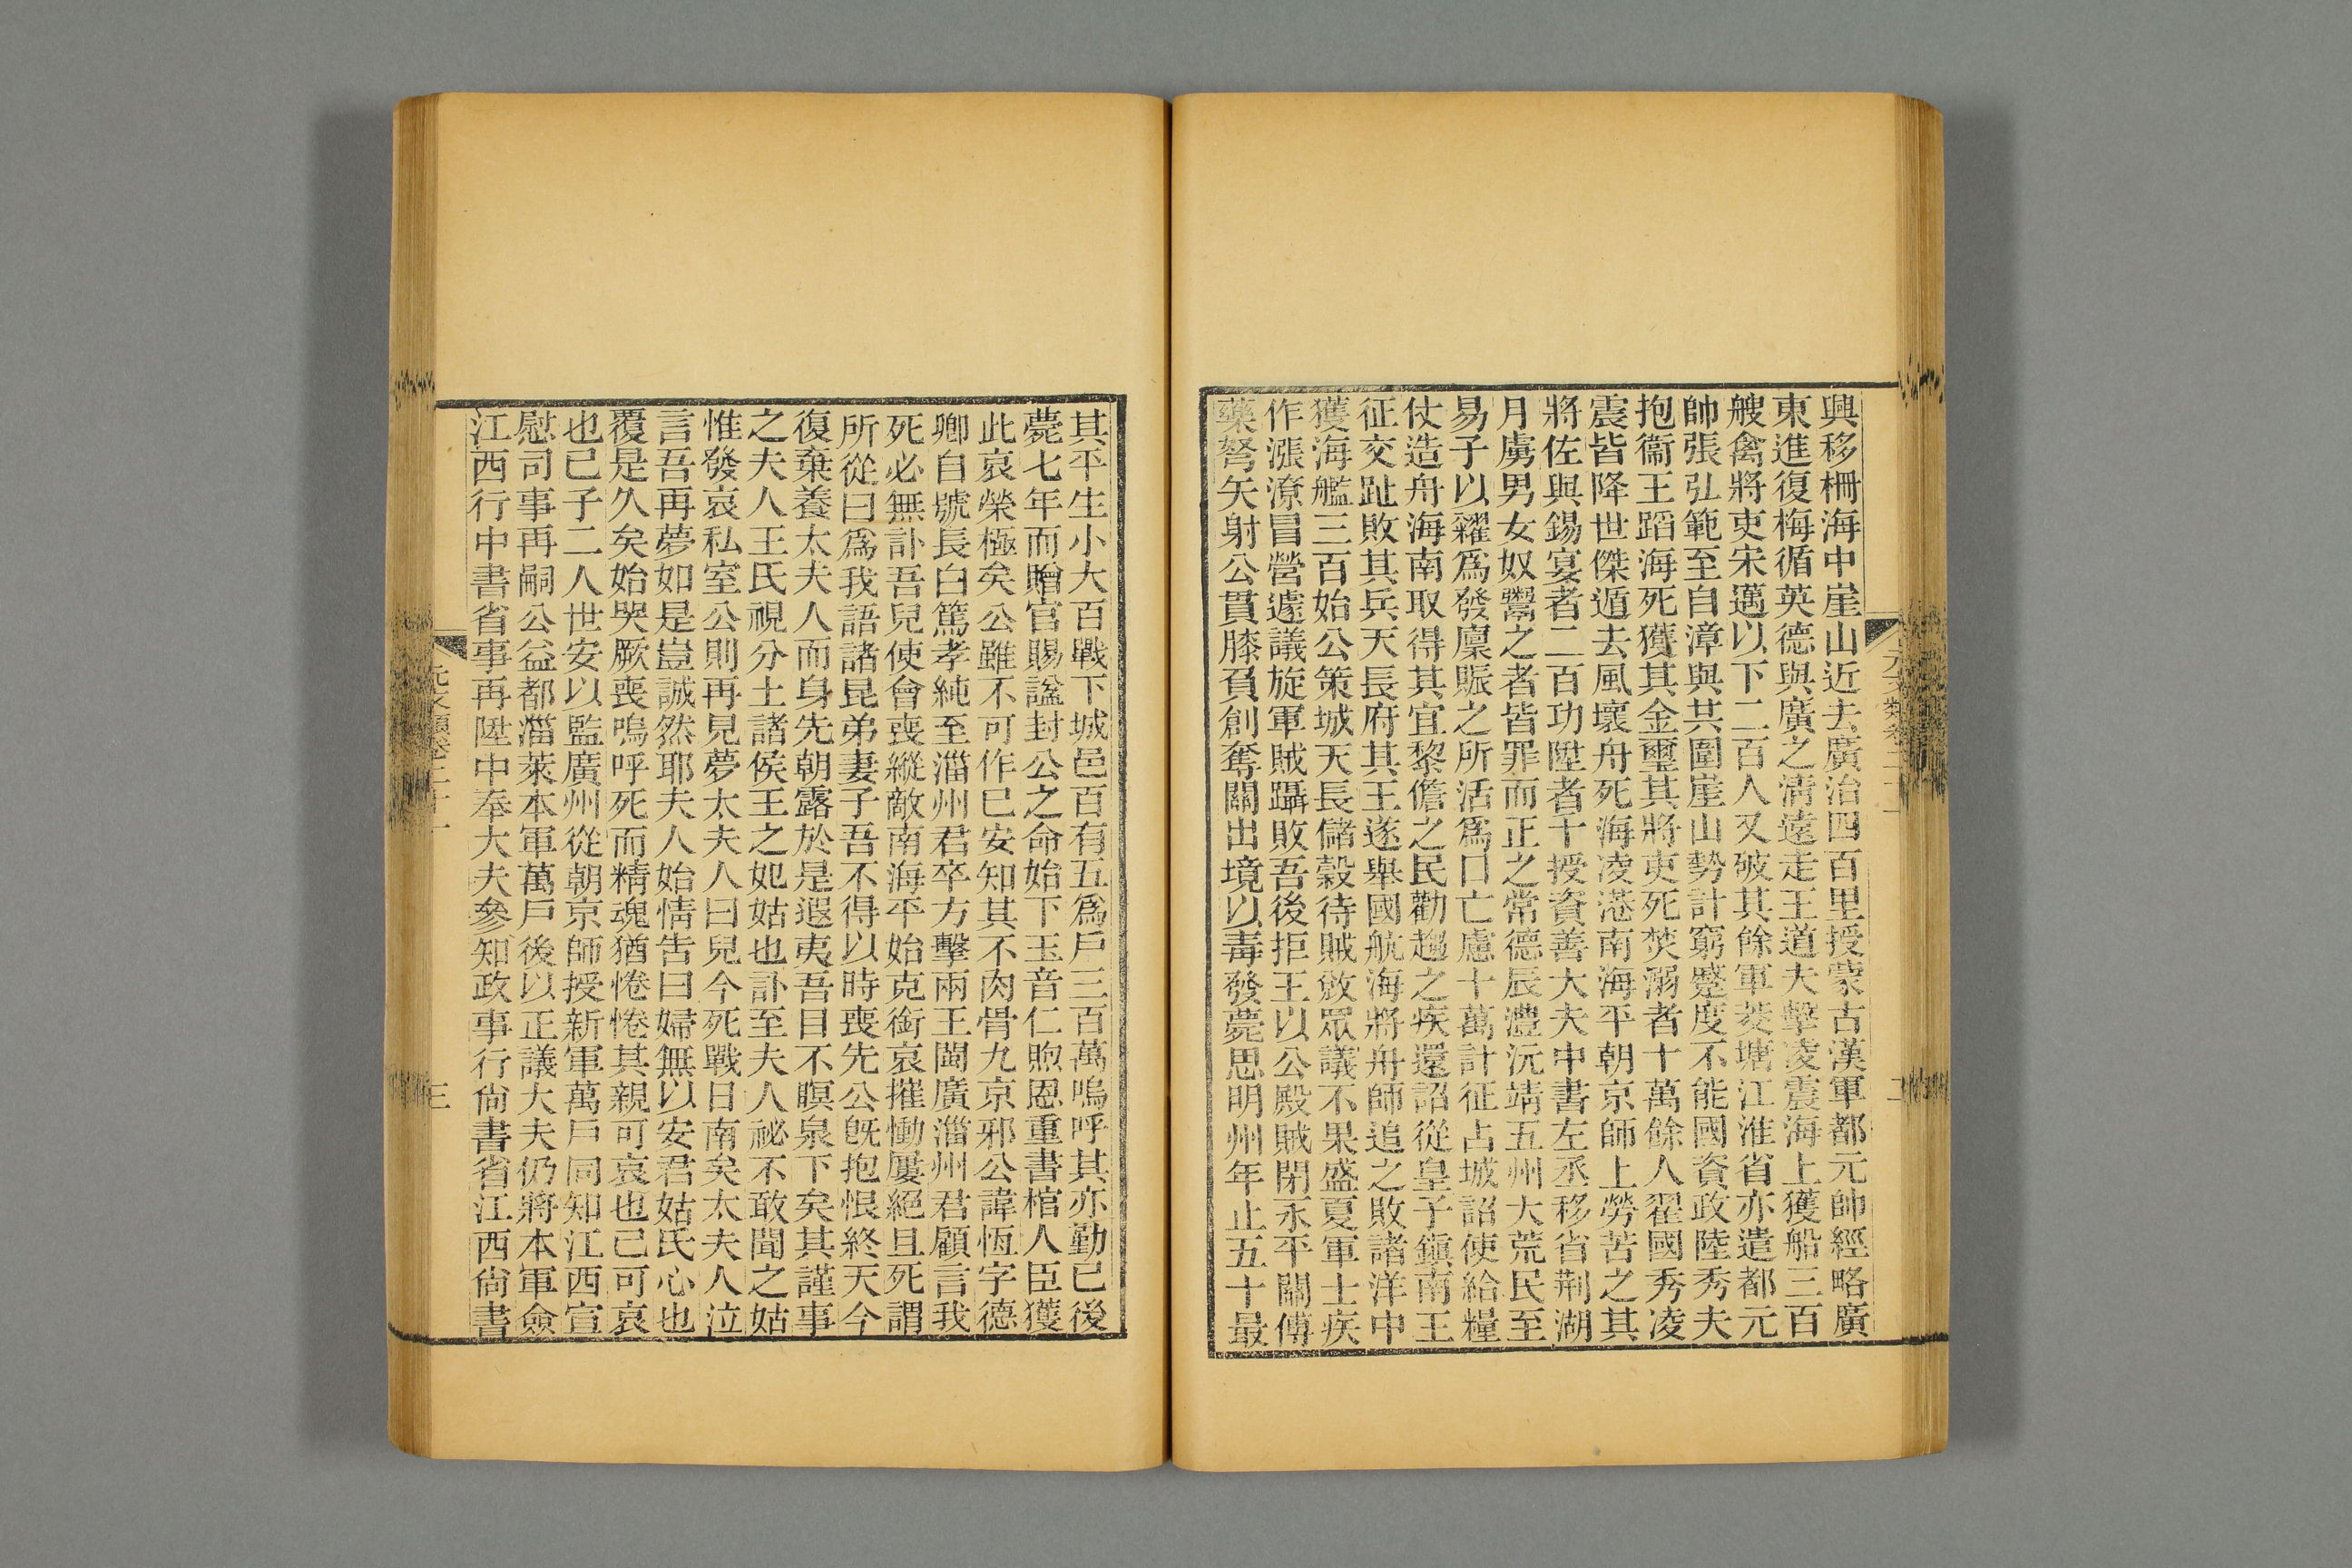 興移柵海中崖山近去廣治四百里授蒙古漢軍都元帥經略廣
東進復梅循英德與廣之淸遠走王道夫擊凌震海上獲船三百
艘禽將吏宋邁以下二百人又破其餘軍茭塘江淮省亦遣都元
帥張弘範至自漳與共圍崖山勢計窮蹙度不能國資政陸秀夫
抱衞王蹈海死獲其金璽其將吏死焚溺者十萬餘人翟國秀凌
震皆降世傑遁去風壞舟死海凌港南海平朝京師上勞苦之其
將佐與錫宴者二百功陞者千授資善大夫中書左丞移省荆湖
月虜男女奴鬻之者皆罪而正之常德辰澧沅靖五州大荒民至
易子以糴爲發廩賑之所活爲口亡慮十萬計征占城詔使給糧
仗造舟海南取得其宜黎儋之民勸趨之疾還詔從皇子鎭南王
征交趾敗其兵天長府其王遂舉國航海將舟師追之敗諸洋中
獲海艦三百始公策城天長儲穀待賊敓眾議不果盛夏軍士疾
作漲潦冒營遽議旋軍賊躡敗吾後拒王以公殿賊閉永平關傅
藥弩矢射公貫膝負創奪關出境以毒發薨思明州年止五十最
元文類卷二十一
二
其平生小大百戰下城邑百有五爲戶三百萬嗚呼其亦勤已後
薨七年而贈官賜諡封公之命始下玉音仁煦恩重書棺人臣獲
此哀榮極矣公雖不可作已安知其不肉骨九京邪公諱恆字德
卿自號長白篤孝純至淄州君卒方擊兩王閩廣淄州君顧言我
死必無訃吾兒使會喪縱敵南海平始克銜哀摧慟屢絕且死謂
所從曰爲我語諸昆弟妻子吾不得以時喪先公旣抱恨終天今
復棄養太夫人而身先朝露於是遐夷吾目不瞑泉下矣其謹事
之夫人王氏視分土諸侯王之妃姑也訃至夫人祕不敢聞之姑
惟發哀私室公則再見夢太夫人曰兒今死戰日南矣太夫人泣
言吾再夢如是豈誠然耶夫人始情告曰婦無以安君姑氏心也
覆是久矣始哭厥喪嗚呼死而精魂猶惓惓其親可哀也已可哀
也已子二人世安以監廣州從朝京師授新軍萬戶同知江西宣
慰司事再嗣公益都淄萊本軍萬戶後以正議大夫仍將本軍僉
江西行中書省事再陞中奉大夫參知政事行尙書省江西尙書
元文類卷二十一
三